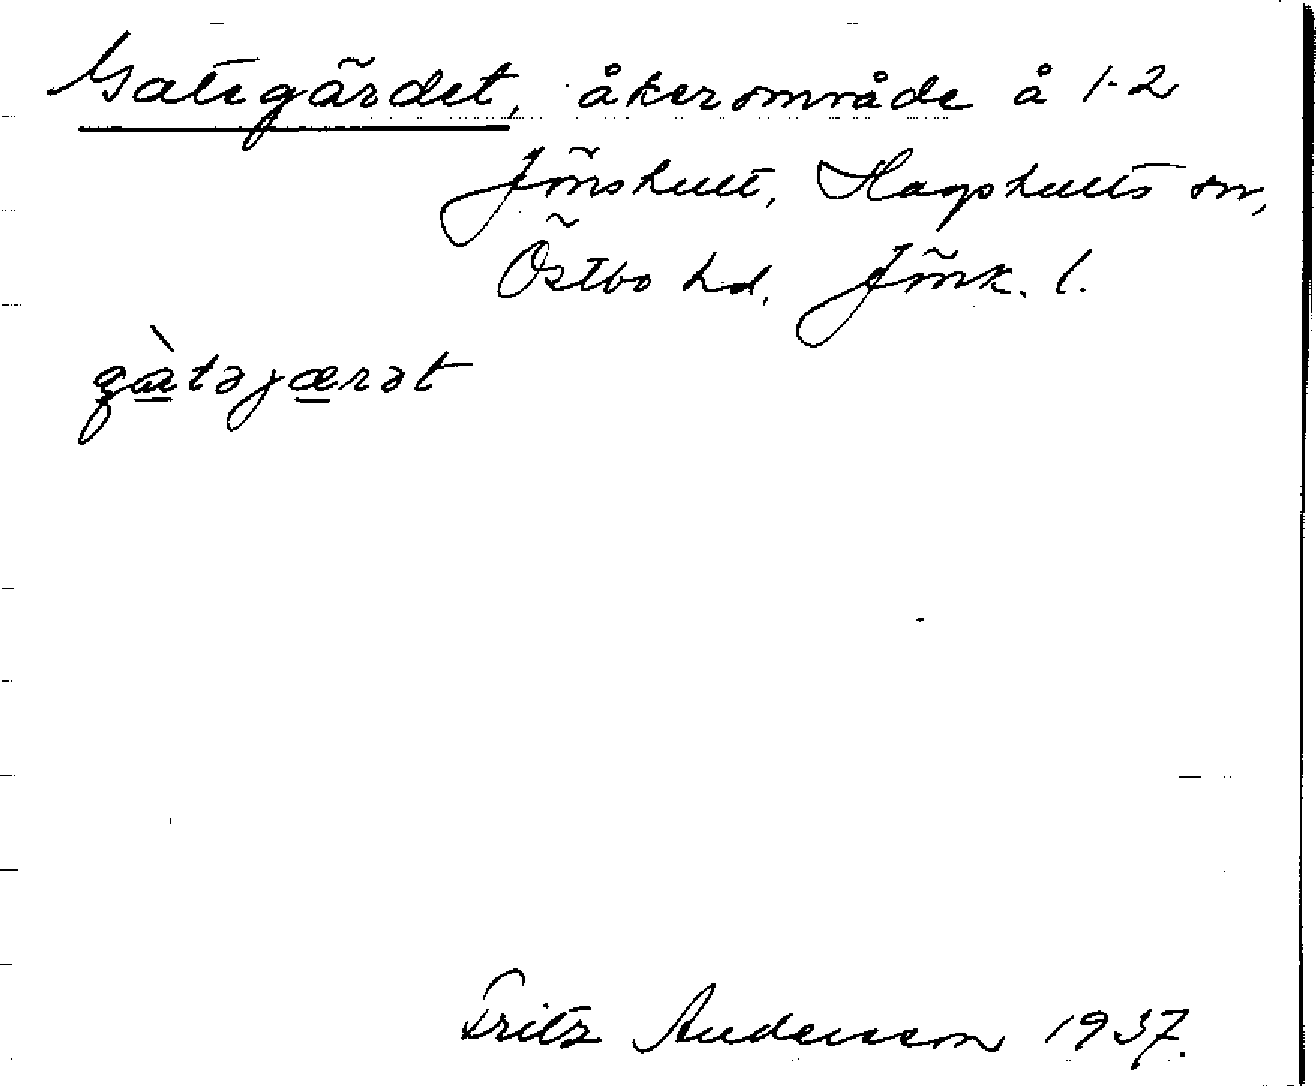 Gategärdet, åkerområde å 1-2
Jönshult, Hagshults sn,
Östbo hd, Jönk. l.
gàtəjærət
Fritz Andersson 1937.